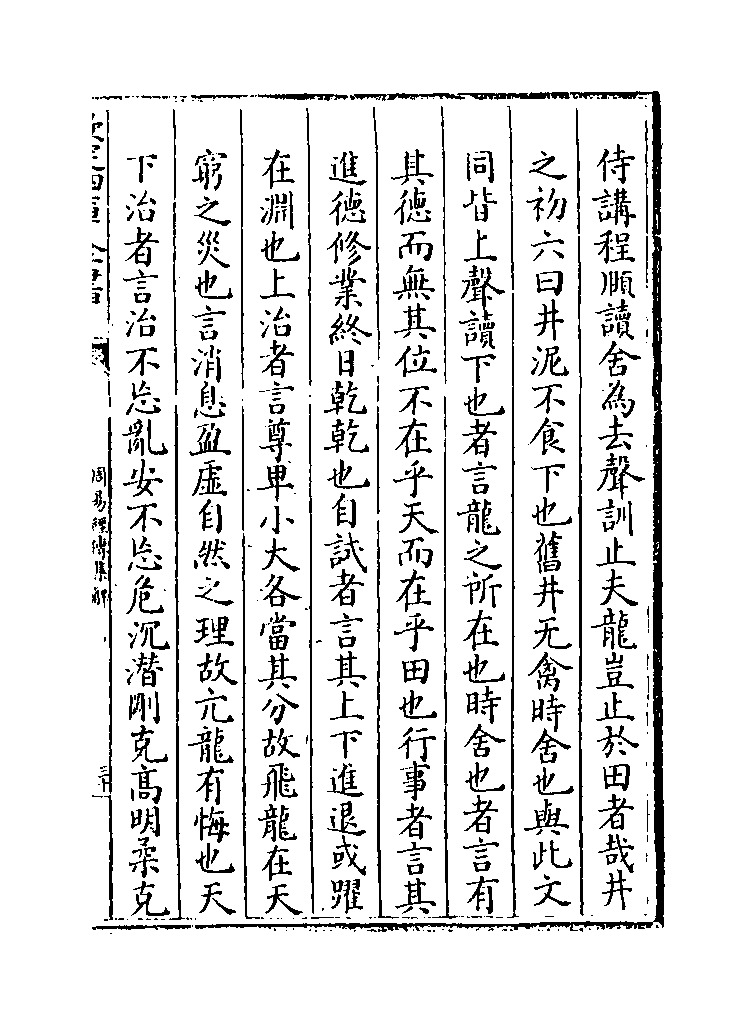 侍講程頤讀舍為去聲訓止夫龍豈止於田者哉井
之初六曰井泥不食下也舊井无禽時舍也與此文
同皆上聲讀下也者言龍之所在也時舍也者言有
其德而無其位不在乎天而在乎田也行事者言其
進德修業終日乾乾也自試者言其上下進退或躍
在淵也上治者言尊卑小大各當其分故飛龍在天
窮之災也言消息盈虛自然之理故亢龍有悔也天
下治者言治不忘亂安不忘危沉潛剛克高明柔克
周易經傳集解
三十